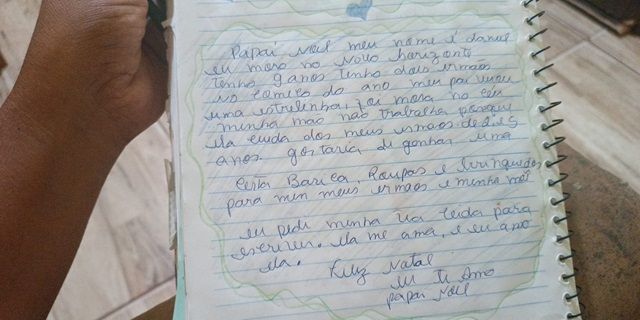 Papai Noel meu nome é daniel
eu moro no Novo horizonte
tenho 9 anos tenho dois irmãos
no começo do ano meu pai virou
uma estrelinha, foi mora no céu
minha mãe não trabalha porque
ela cuida dos meus irmãos de 2 e 5
anos. gostaria di ganhar uma
Cesta Basica, Roupas e brinquedos
para mim meus irmãos e minha mãe
eu pedi minha tia
para
escrever. ela me ama, e eu amo
ela. Feliz Natal
eu te Amo
papai Noel